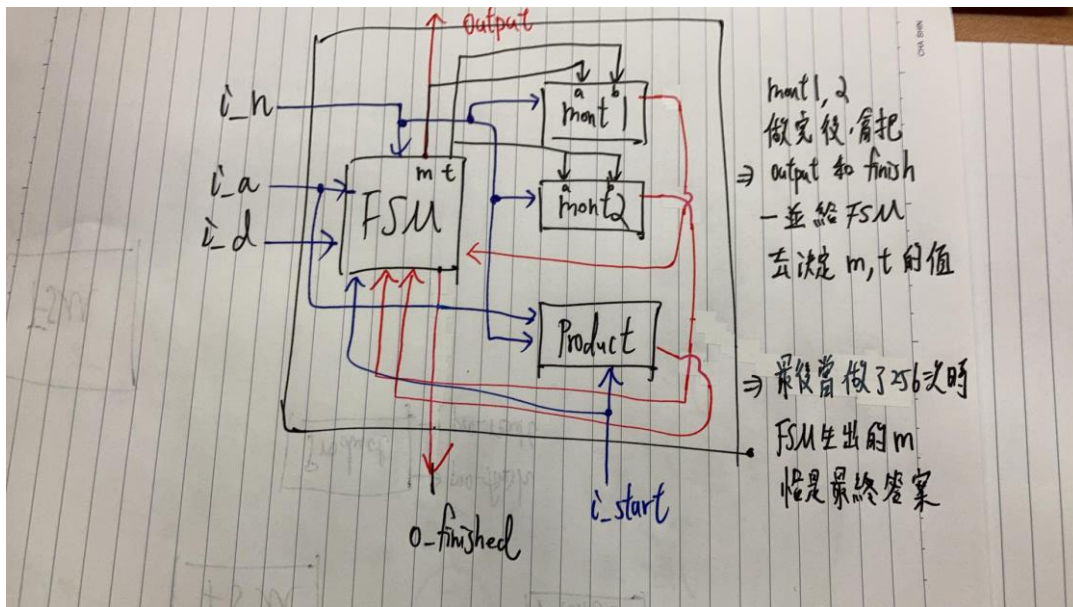 output
i_n
i_a
i_d
m t
FSM
a b
mont 1
a b
mont2
Product
i_start
o_finished
mont1, 2
做完後，會把
⇒ output 和 finish
一並給 FSM
去決定 m, t 的值
⇒ 最後當做了256次時
FSM生出的m
恰是最終答案
CHA SHIN